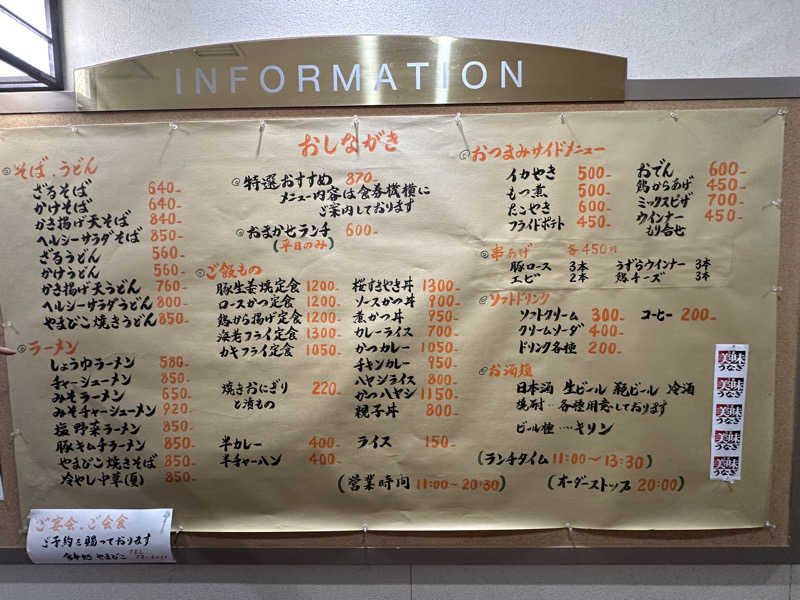 INFORMATION
おしながき
そば、うどん
ざるそば 640-
かけそば 640-
かき揚げ天そば 840-
ヘルシーサラダそば 850-
ざるうどん 560-
かけうどん 560-
かき揚げ天うどん 760-
ヘルシーサラダうどん 800-
やまびこ焼きうどん 850-
ラーメン
しょうゆラーメン 580-
チャーシューメン 850-
みそラーメン 650-
みそチャーシューメン 920-
塩野菜ラーメン 850-
豚キムチラーメン 850-
やまびこ焼きそば 850-
冷やし中華(夏) 850-
特選おすすめ 870-
メニュー内容は食券機横に
ご案内しております
おまかせランチ 600-
(平日のみ)
ご飯もの
豚生姜焼定食 1200-
ロースかつ定食 1200-
鶏から揚げ定食 1200-
海老フライ定食 1300-
カキフライ定食 1050-
焼きおにぎり 220-
と漬もの
半カレー 400-
半チャーハン 400-
桜すきやき丼 1300-
ソースかつ丼 900-
煮かつ丼 950-
カレーライス 700-
かつカレー 1050-
チキンカレー 950-
ハヤシライス 800-
かつハヤシ 1150-
親子丼 800-
ライス 150-
(営業時間 11:00〜20:30)
おつまみサイドメニュー
イカやき 500-
もつ煮 500-
たこやき 600-
フライドポテト 450-
おでん 600-
鶏からあげ 450-
ミックスピザ 700-
ウインナー 450-
もり合せ
串あげ 各450円
豚ロース 3本 うずらウインナー 3本
エビ 2本 鶏チーズ 3本
ソフトドリンク
ソフトクリーム 300- コーヒー 200-
クリームソーダ 400-
ドリンク各種 200-
お酒類
日本酒 生ビール 瓶ビール 冷酒
焼酎‥各種用意しております
ビール種‥‥キリン
(ランチタイム 11:00〜13:30)
(オーダーストップ 20:00)
美味
うなぎ
美味
うなぎ
美味
うなぎ
美味
うなぎ
美味
うなぎ
ご宴会、ご会食
ご予約を賜っております
やまびこ